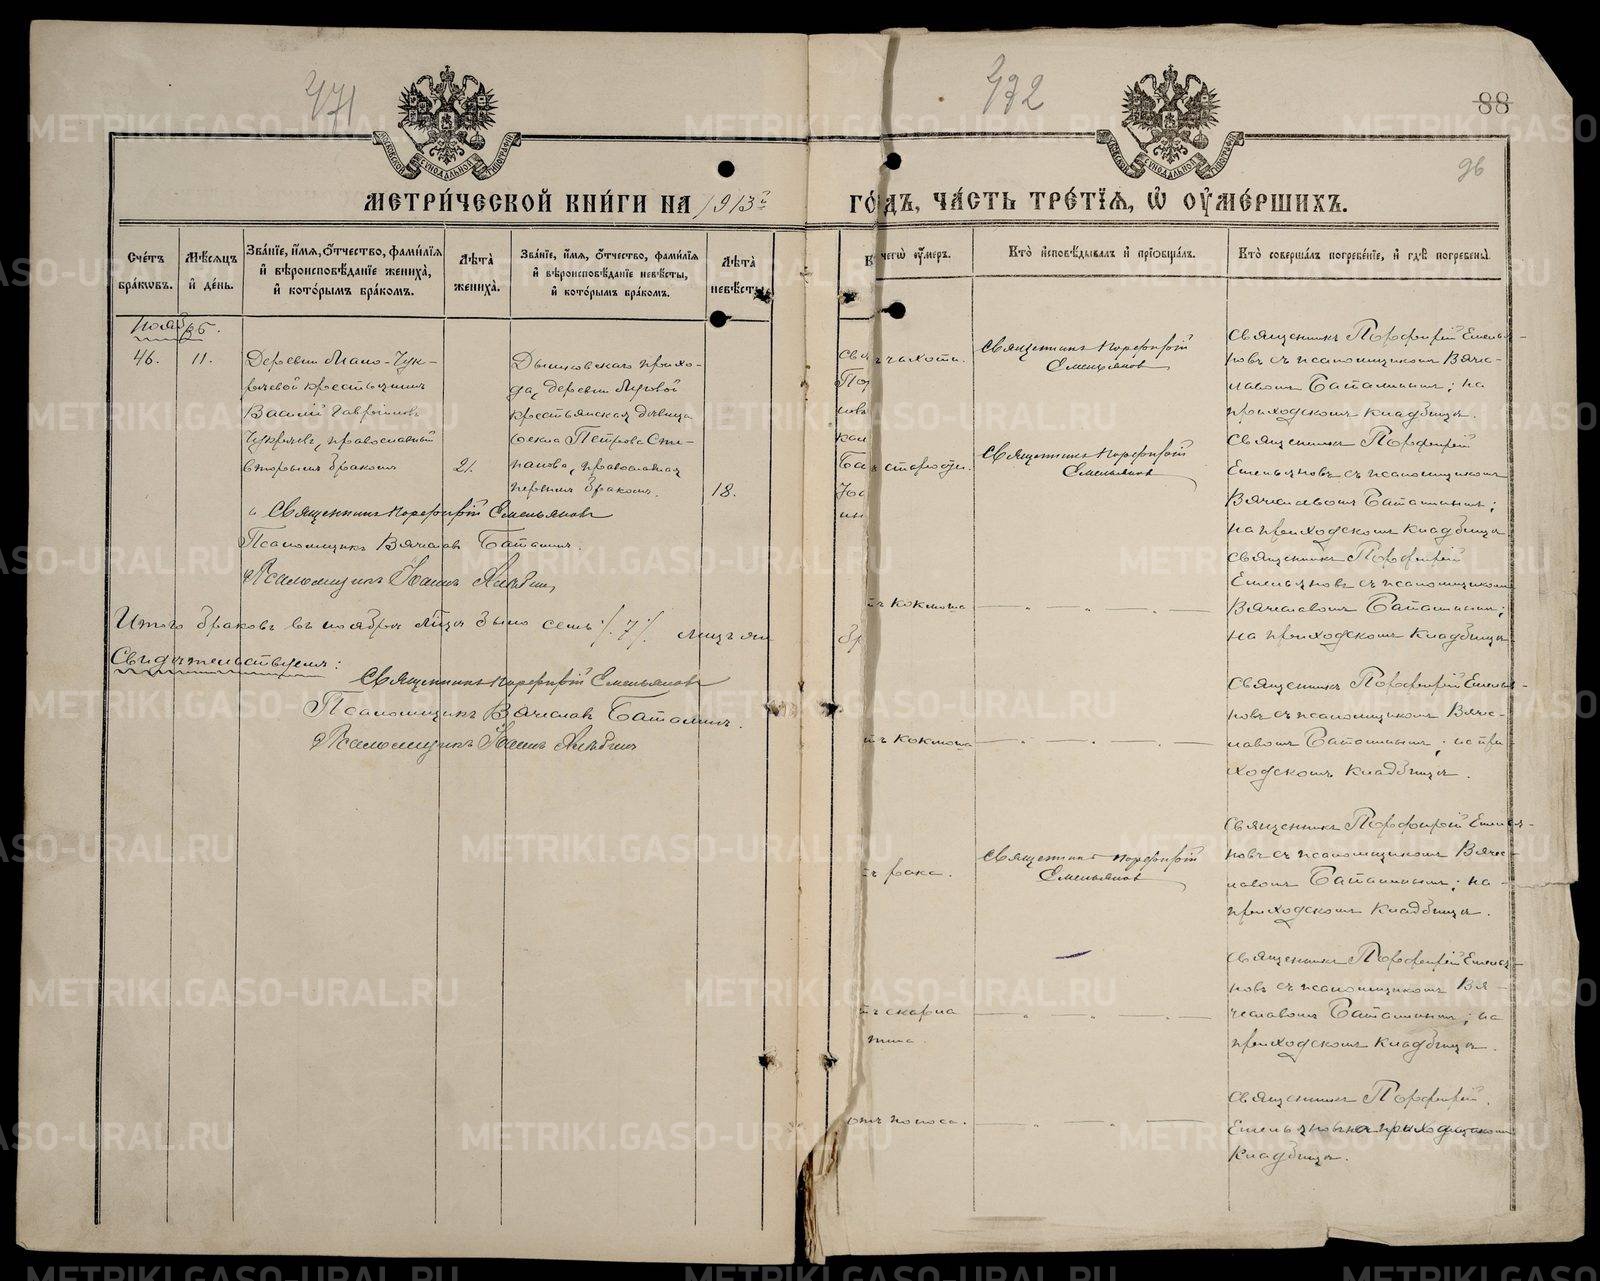 471
МЕТРИ́ЧЕСКОЙ КНИ́ГИ НА 1913й
Сче́тъ бра́ковъ.
Мѣ́сяцъ и де́нь.
Зва́нїе, и́мя, ѻ́тчество, фами́лїя и҆ вѣроисповѣ́данїе жениха̀, и҆ кото́рымъ бра́комъ.
Лѣ́та жениха̀.
Зва́нїе, и́мя, ѻ́тчество, фами́лїя и҆ вѣроисповѣ́данїе невѣ́сты, и҆ кото́рымъ бра́комъ.
Лѣ́та невѣ́сты
Ноябрь.
46.
11.
Деревни Мало-Чук-
крестьянинъ
Василій Гавріиловъ
православный
вторымъ бракомъ
21.
прихо-
да, деревни Луговой
крестьянская дѣвица
Ѳекла Петрова
православная
первымъ бракомъ.
18.
Священникъ Порфирій Емельяновъ
Псаломщикъ Вячеславъ Баталинъ.
Псаломщикъ Іоаннъ
Итого браковъ въ ноябрѣ м҃цѣ было семь /. 7 /.
Свидѣтельствуемъ:
Священникъ Порфирій Емельяновъ
Псаломщикъ Вячеславъ Баталинъ.
Псаломщикъ Іоаннъ
472
88
96
ГО́ДЪ, ЧА́СТЬ ТРЕ́ТЇѦ, Ѡ҆ ОУ҆МЕ́РШИХЪ.
чегѡ̀ оу҆́меръ.
Кто̀ и҆сповѣ́дывалъ и҆ прїѻбща́лъ.
Кто̀ соверша́лъ погребе́нїе, и҆ гдѣ̀ погребены̀.
чахотки.
Священникъ Порфирій
Емельяновъ
Священникъ Порфирій Емелья-
новъ съ псаломщикомъ Вяче-
славомъ Баталинымъ; на
приходскомъ кладбищѣ.
старости.
Священникъ Порфирій
Емельяновъ
Священникъ Порфирій
Емельяновъ съ псаломщикомъ
Вячеславомъ Баталинымъ;
на приходскомъ кладбищѣ
коклюша
Священникъ Порфирій
Емельяновъ съ псаломщикомъ
Вячеславомъ Баталинымъ;
на приходскомъ кладбищѣ
коклюша
Священникъ Порфирій Емелья-
новъ съ псаломщикомъ Вяче-
славомъ Баталинымъ; на при-
ходскомъ кладбищѣ.
рака.
Священникъ Порфирій
Емельяновъ
Священникъ Порфирій Емелья-
новъ съ псаломщикомъ Вяче-
славомъ Баталинымъ; на
приходскомъ кладбищѣ.
скарла
тина.
Священникъ Порфирій Емелья-
новъ съ псаломщикомъ Вя-
чеславомъ Баталинымъ; на
приходскомъ кладбищѣ.
отъ поноса.
Священникъ Порфирій
Емельяновъ на приходскомъ
кладбищѣ.
METRIKI.GASO-URAL.RU